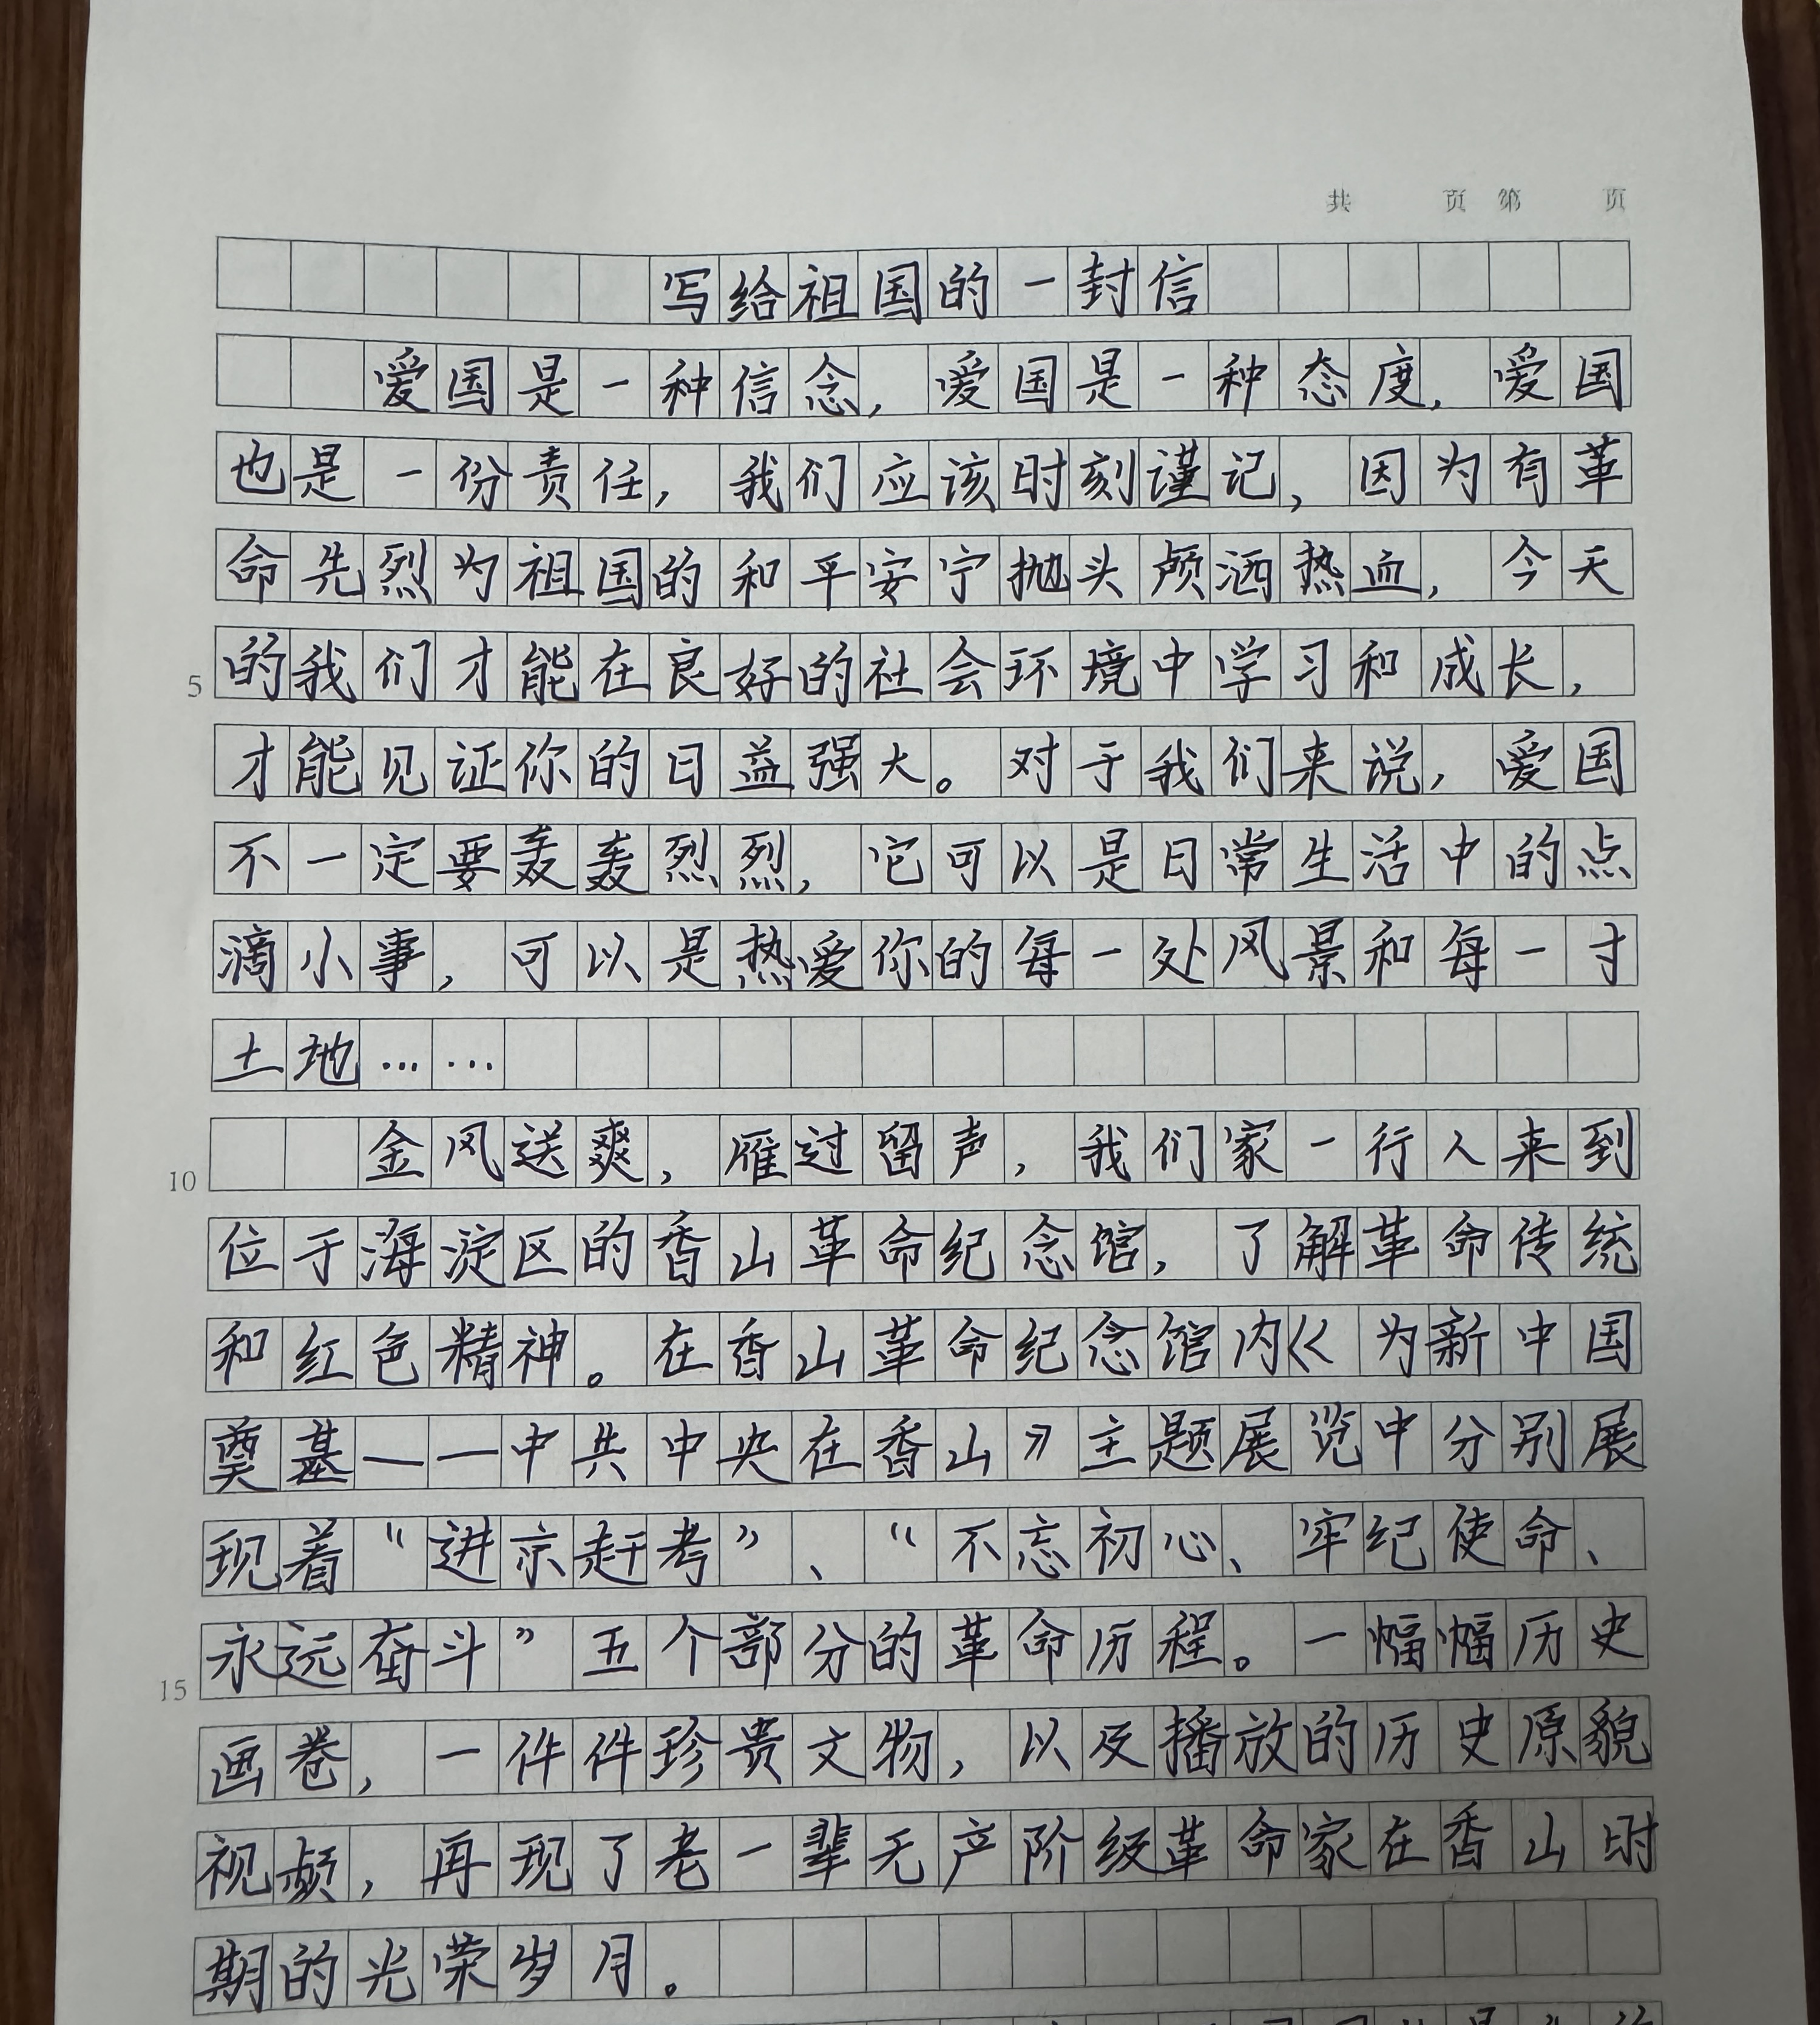 共 页 第 页
写给祖国的一封信
爱国是一种信念，爱国是一种态度，爱国
也是一份责任，我们应该时刻谨记，因为有革
命先烈为祖国的和平安宁抛头颅洒热血，今天
5 的我们才能在良好的社会环境中学习和成长，
才能见证你的日益强大。对于我们来说，爱国
不一定要轰轰烈烈，它可以是日常生活中的点
滴小事，可以是热爱你的每一处风景和每一寸
土地……
10 金风送爽，雁过留声，我们家一行人来到
位于海淀区的香山革命纪念馆，了解革命传统
和红色精神。在香山革命纪念馆内《为新中国
奠基——中共中央在香山》主题展览中分别展
现着“进京赶考”、“不忘初心、牢纪使命、
15 永远奋斗”五个部分的革命历程。一幅幅历史
画卷，一件件珍贵文物，以及播放的历史原貌
视频，再现了老一辈无产阶级革命家在香山时
期的光荣岁月。